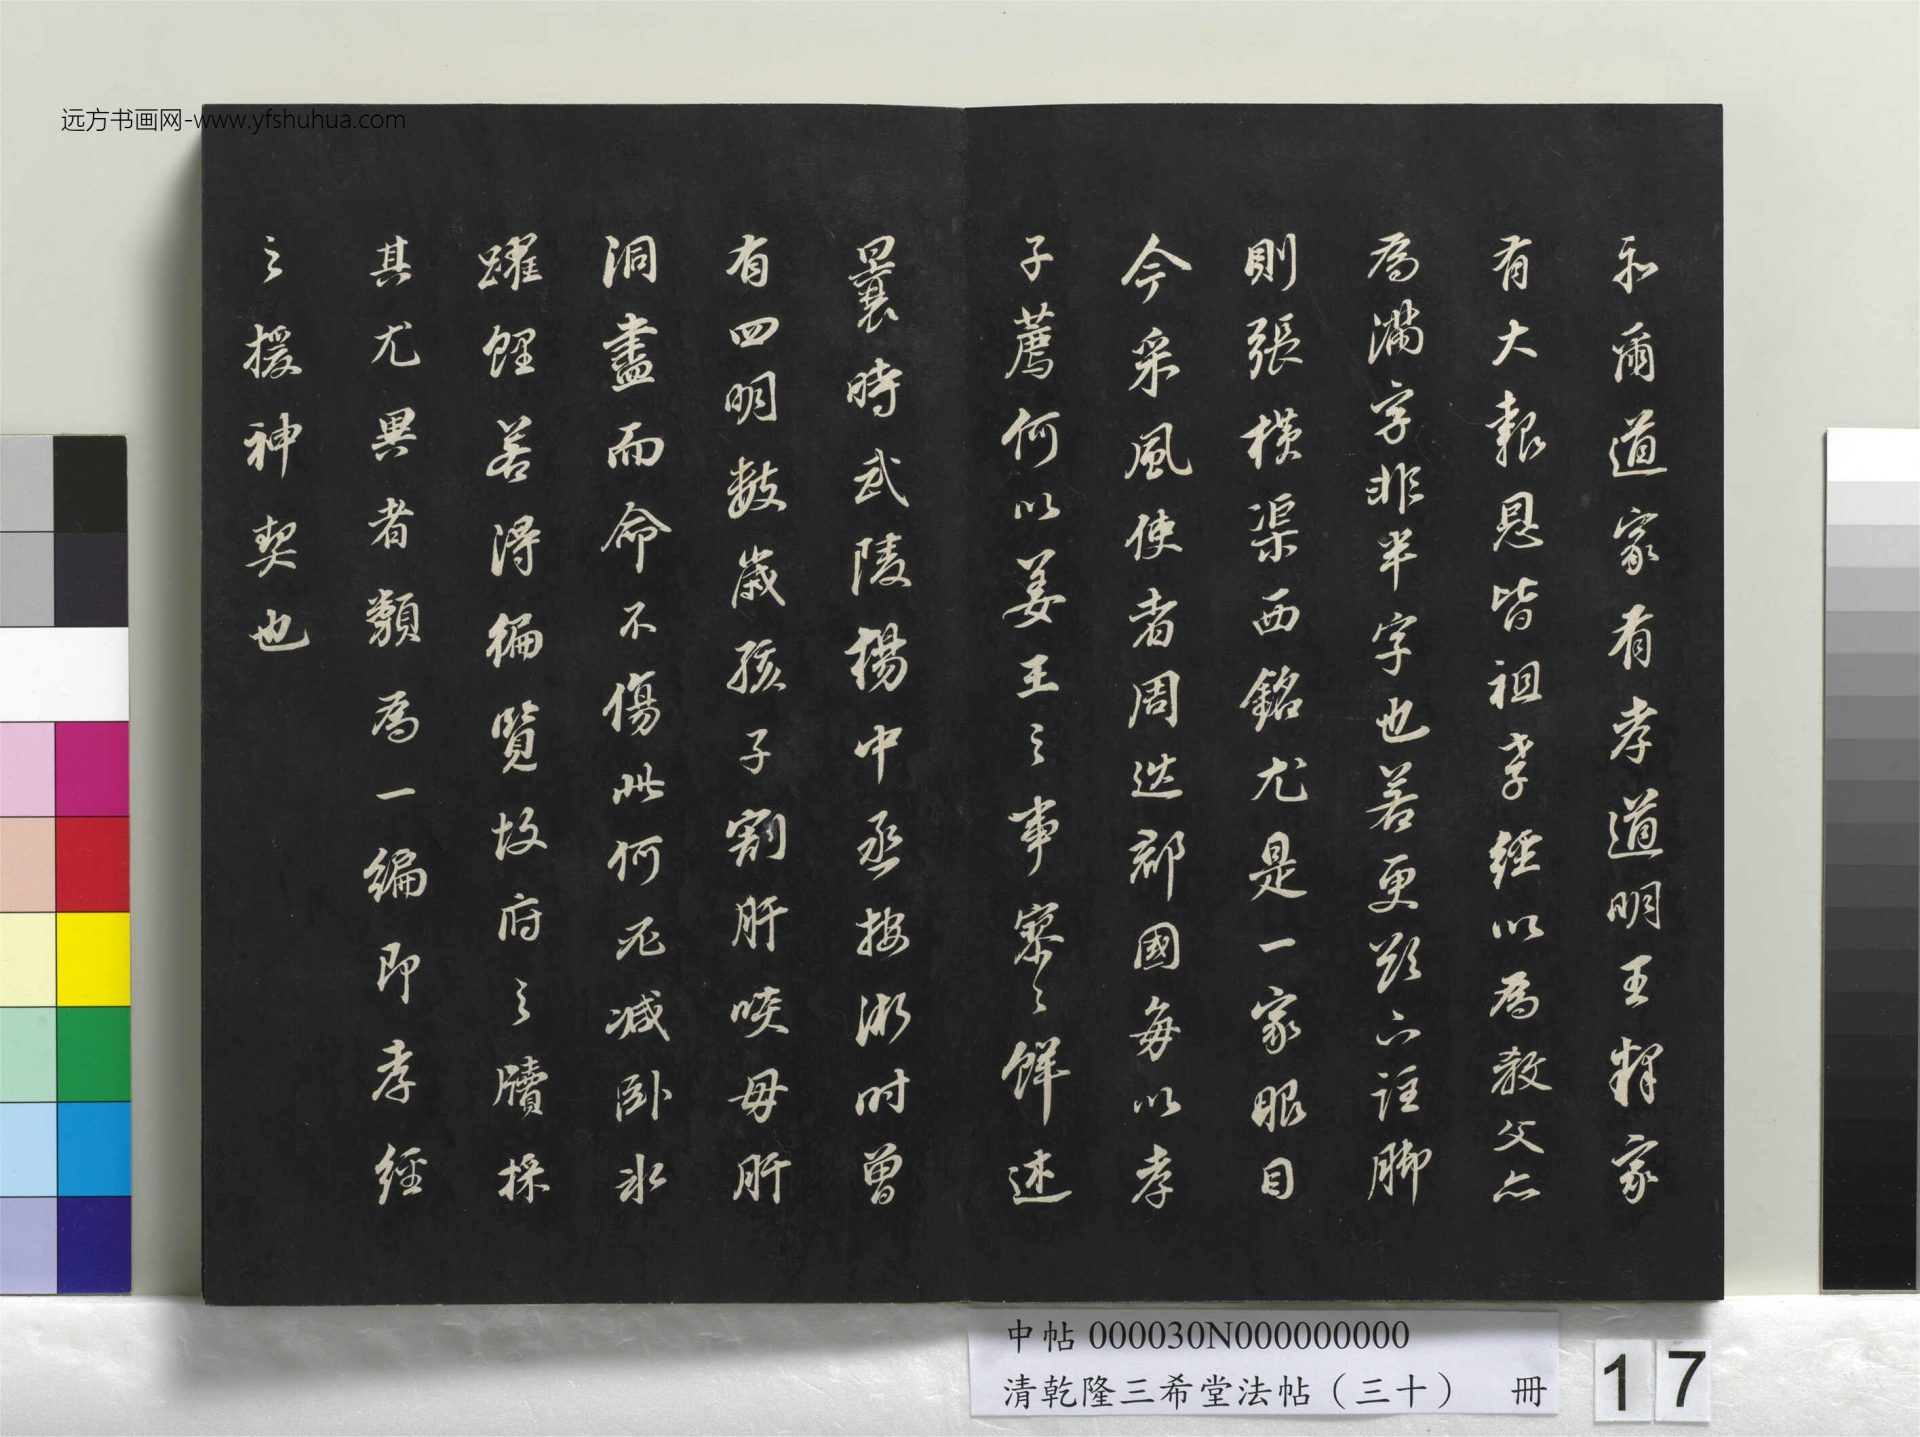 远方书画网-www.yfshuhua.com
和爾道家有孝道明王釋家
有大報恩皆祖孝經以為教父亦
為滿字非半字也若更欲下註脚
則張橫渠西銘尤是一家眼目
今采風使者周迭郡國每以孝
子薦何以姜王之事寥寥鮮述
曩時武陵楊中丞按浙時曾
有四明數歲孩子割肝啖母肝
洞盡而命不傷此何況减卧冰
躍鯉若得徧覽故府之牘採
其尤異者類為一編即孝經
之援神契也
中帖 000030N000000000
清乾隆三希堂法帖（三十） 冊
17